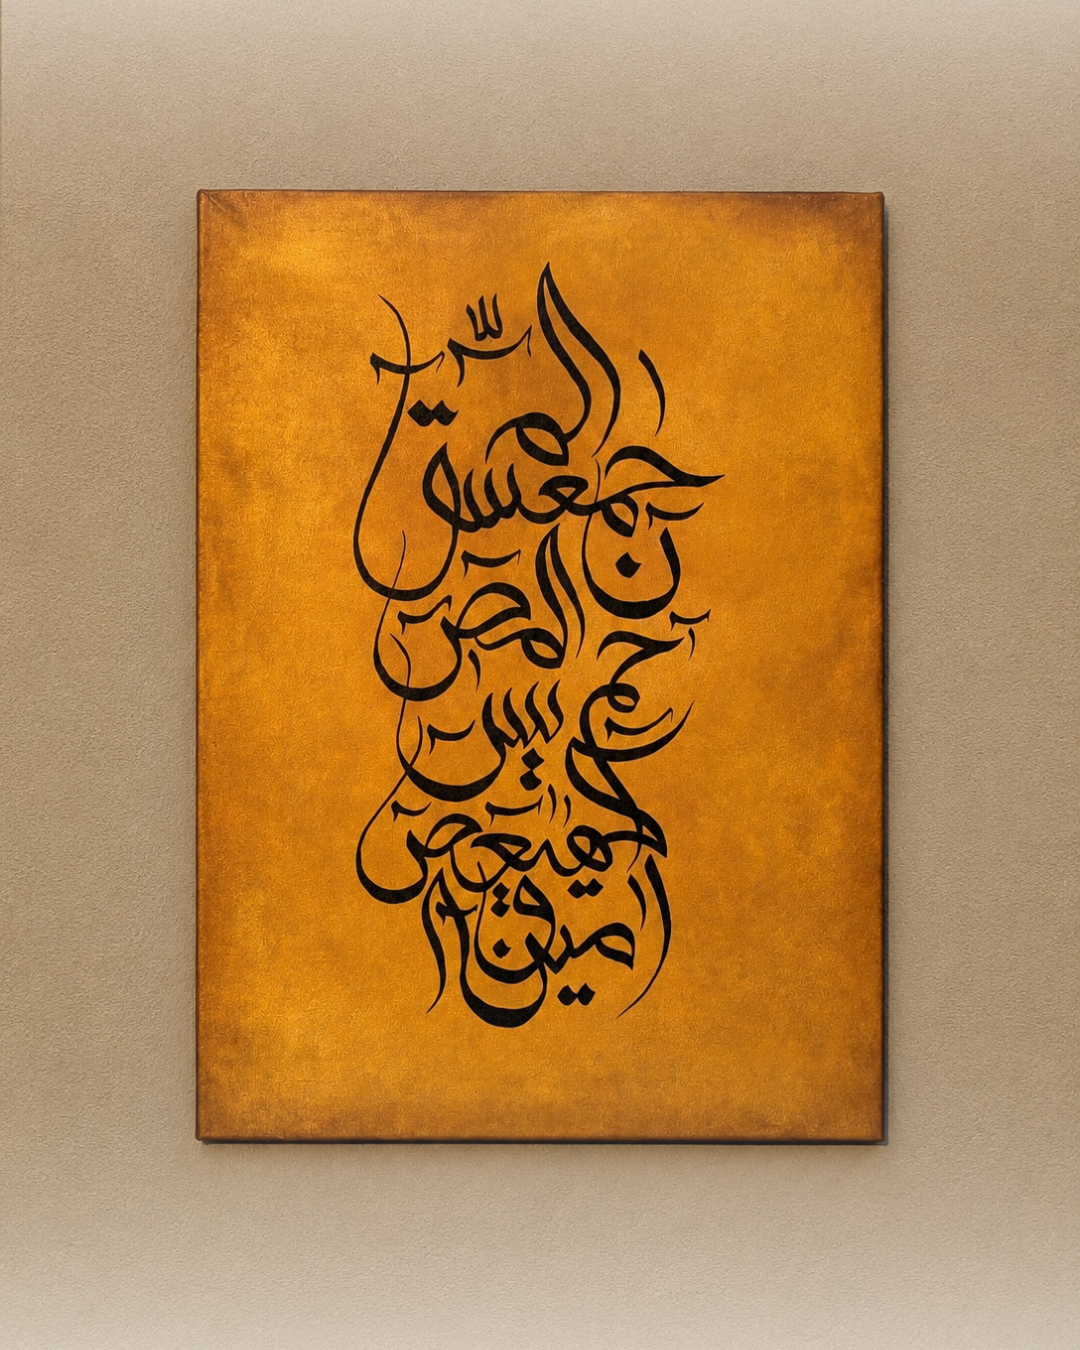 الم
حمعسق
ن المص
حم يس
كهيعص
امين ق